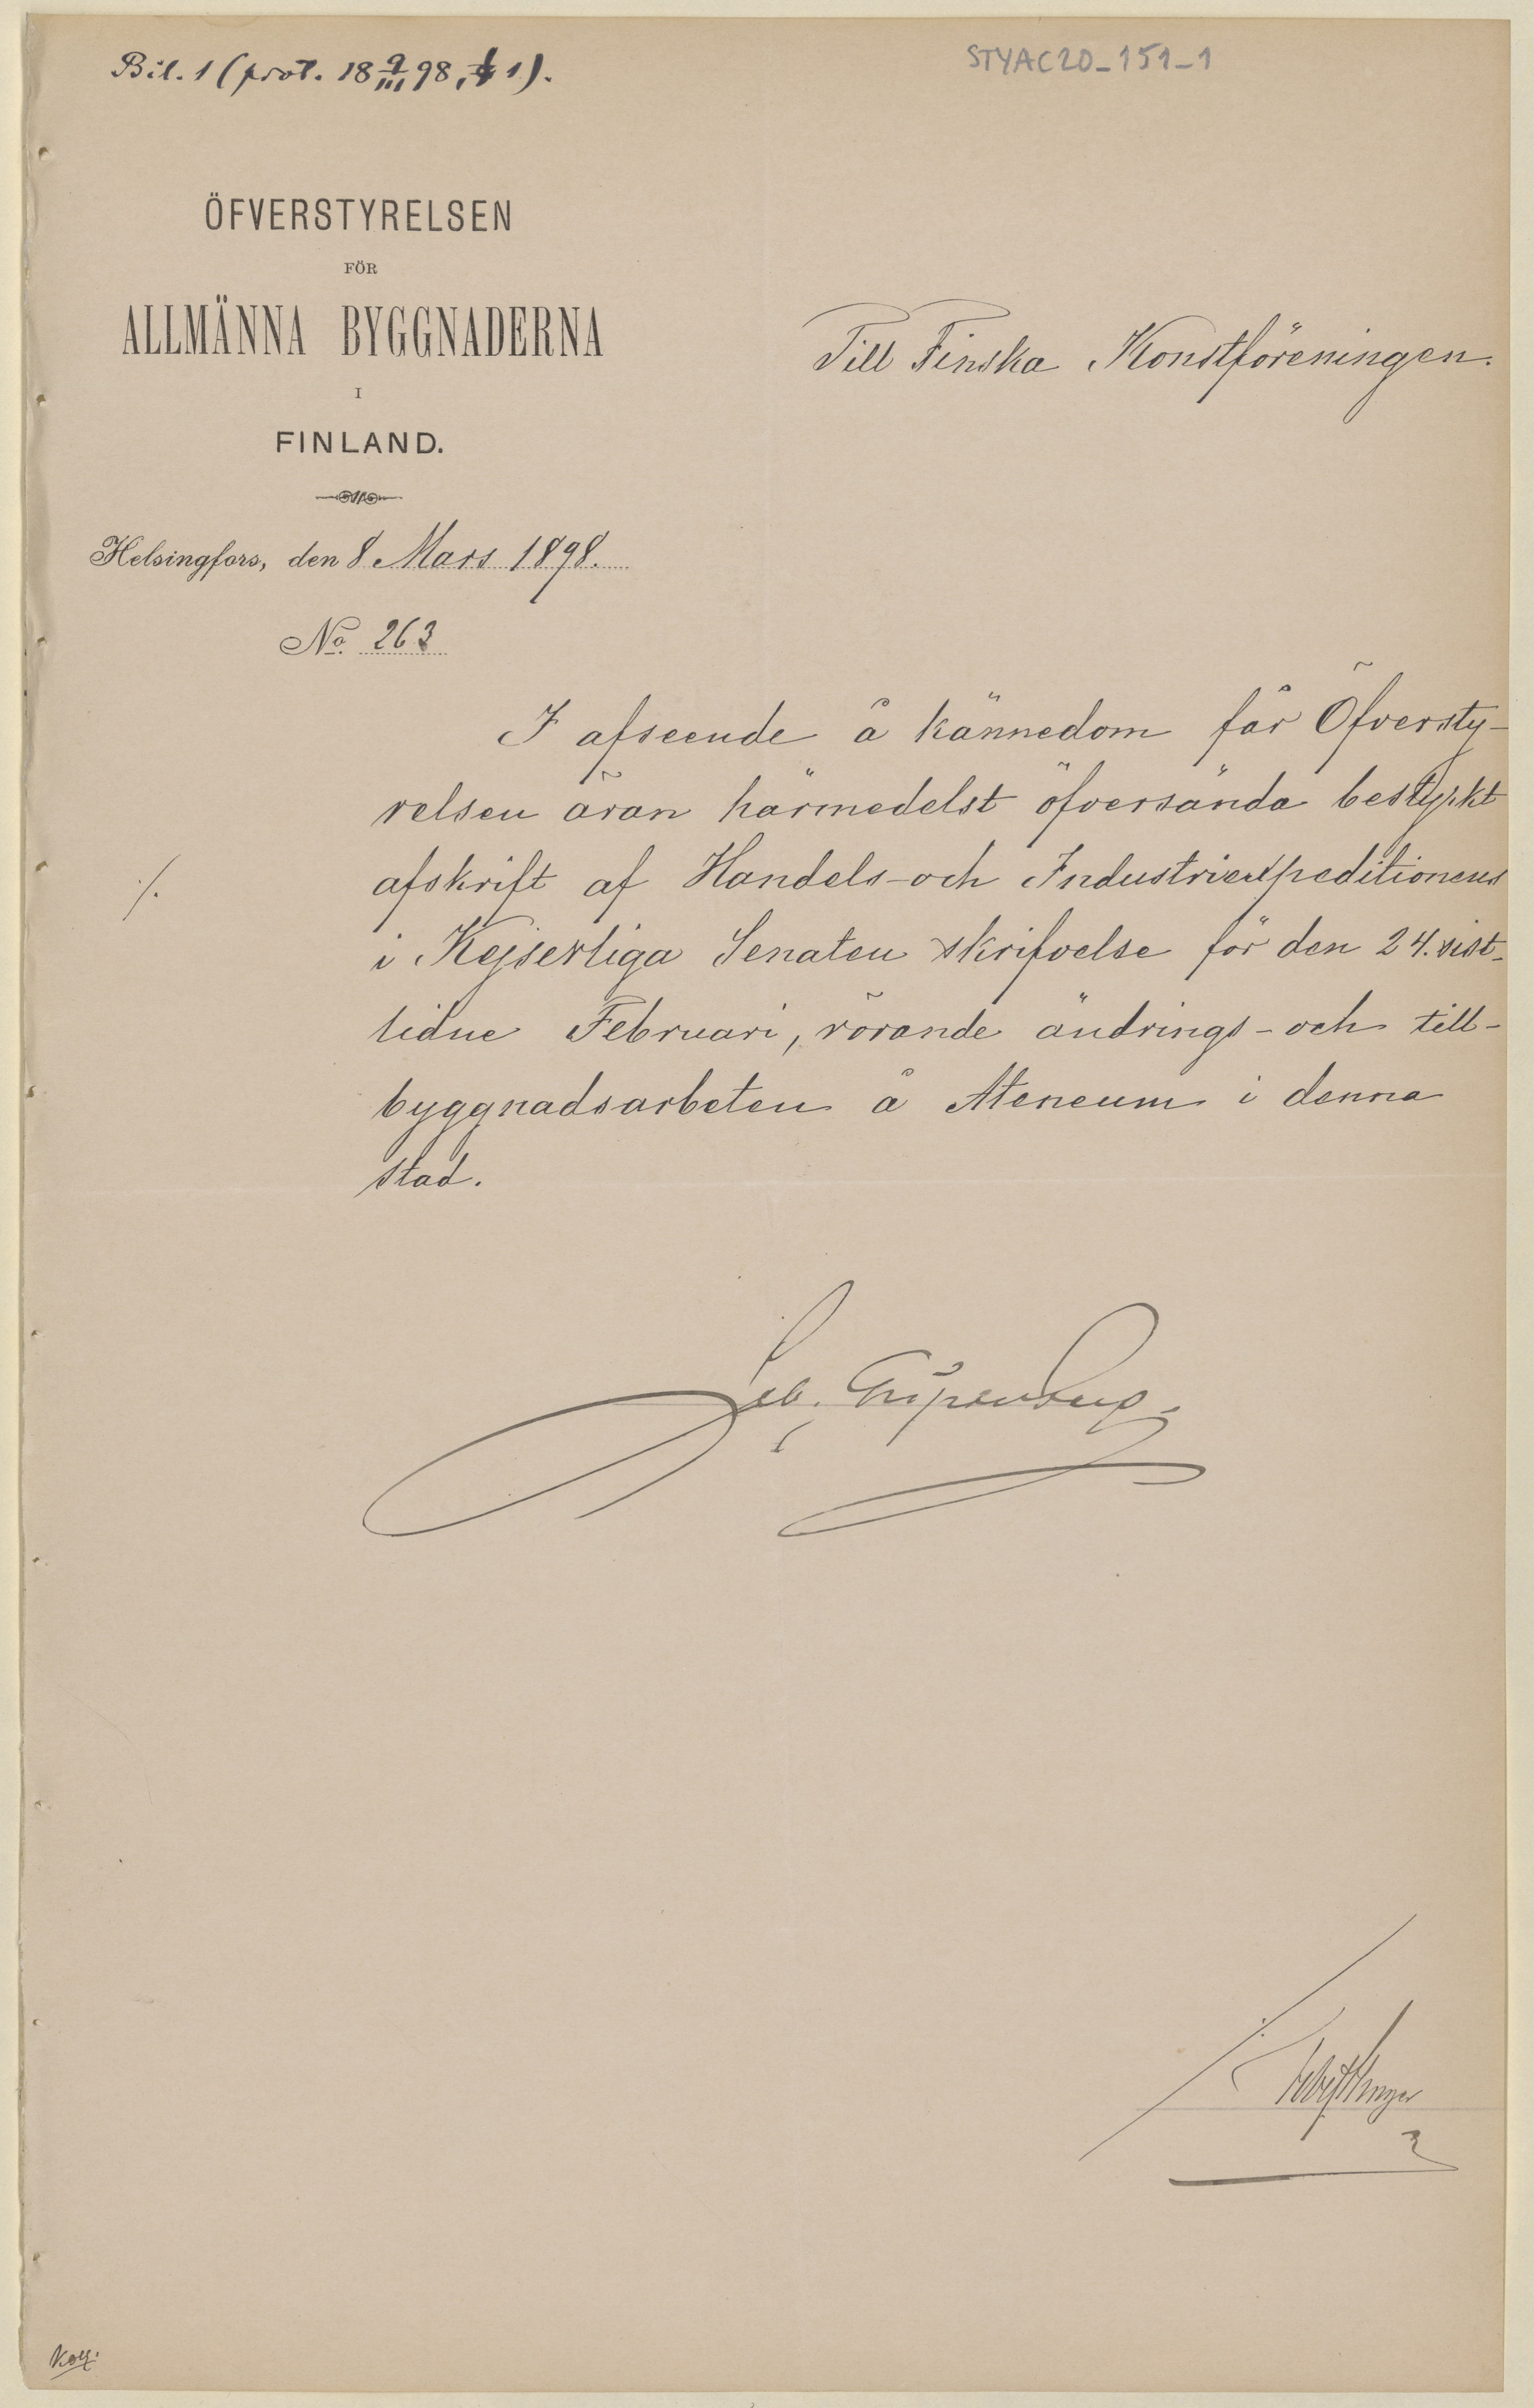 Bil. 1 (prot. 18 9/III 98, § 1).
STYAC20_151_1
ÖFVERSTYRELSEN
FÖR
ALLMÄNNA BYGGNADERNA
I
FINLAND.
Helsingfors, den 8 Mars 1898.
No. 263
Till Finska Konstföreningen.
I afseende å kännedom får Öfversty-
relsen äran härmedelst öfversända bestyrkt
./. afskrift af Handels- och Industriexpeditionens
i Kejserliga Senaten skrifvelse för den 24. sist-
lidne Februari, rörande ändrings- och till-
byggnadsarbeten å Ateneum i denna
stad.
Seb. Gripenberg.
Koll: